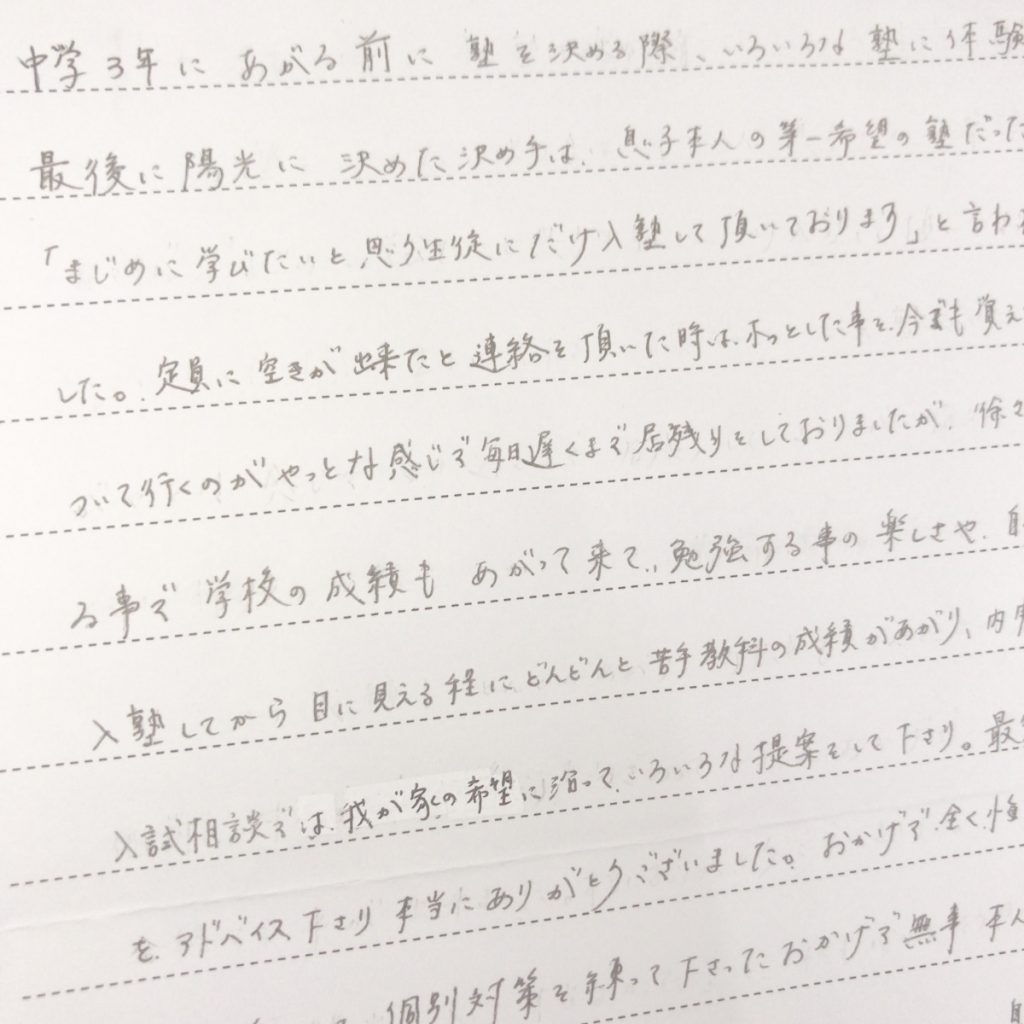 中学3年に あがる前に 塾を決める際、いろいろな 塾に体験
最後に陽光に 決めた決め手は、息子本人の第一希望の塾だった
「まじめに学びたいと思う生徒にだけ入塾して頂いております」と言わ
した。定員に空きが出来たと連絡を頂いた時は、ホッとした事を、今でも覚え
ついて行くのがやっとな感じで毎日遅くまで居残りをしておりましたが、徐々
る事で 学校の成績も あがって来て、勉強する事の楽しさや、自
入塾してから 目に見える程にどんどんと苦手教科の成績があがり、内
入試相談では、我が家の希望に沿って、いろいろな提案をして下さり。最
を、アドバイス下さり 本当にありがとうございました。おかげで、全く、悔
個別対策を練って下さったおかげで無事 本人